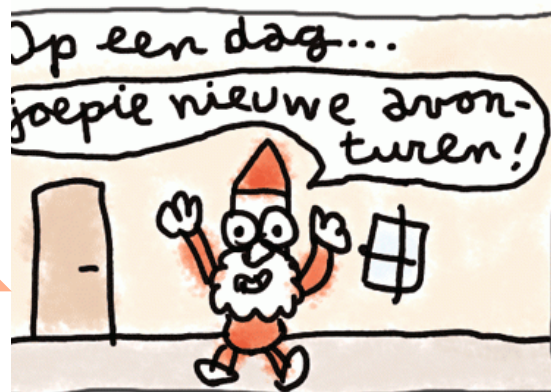 Op een dag...
joepie nieuwe avon-
turen!